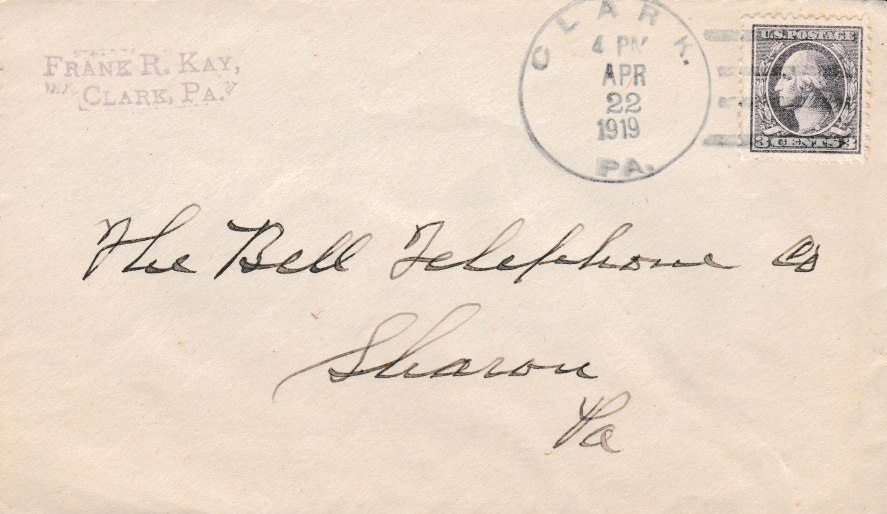 FRANK R. KAY,
CLARK, PA.
CLARK.
4 PM
APR
22
1919
PA.
U.S. POSTAGE
3 CENTS 3
The Bell Telephone Co
Sharon
Pa